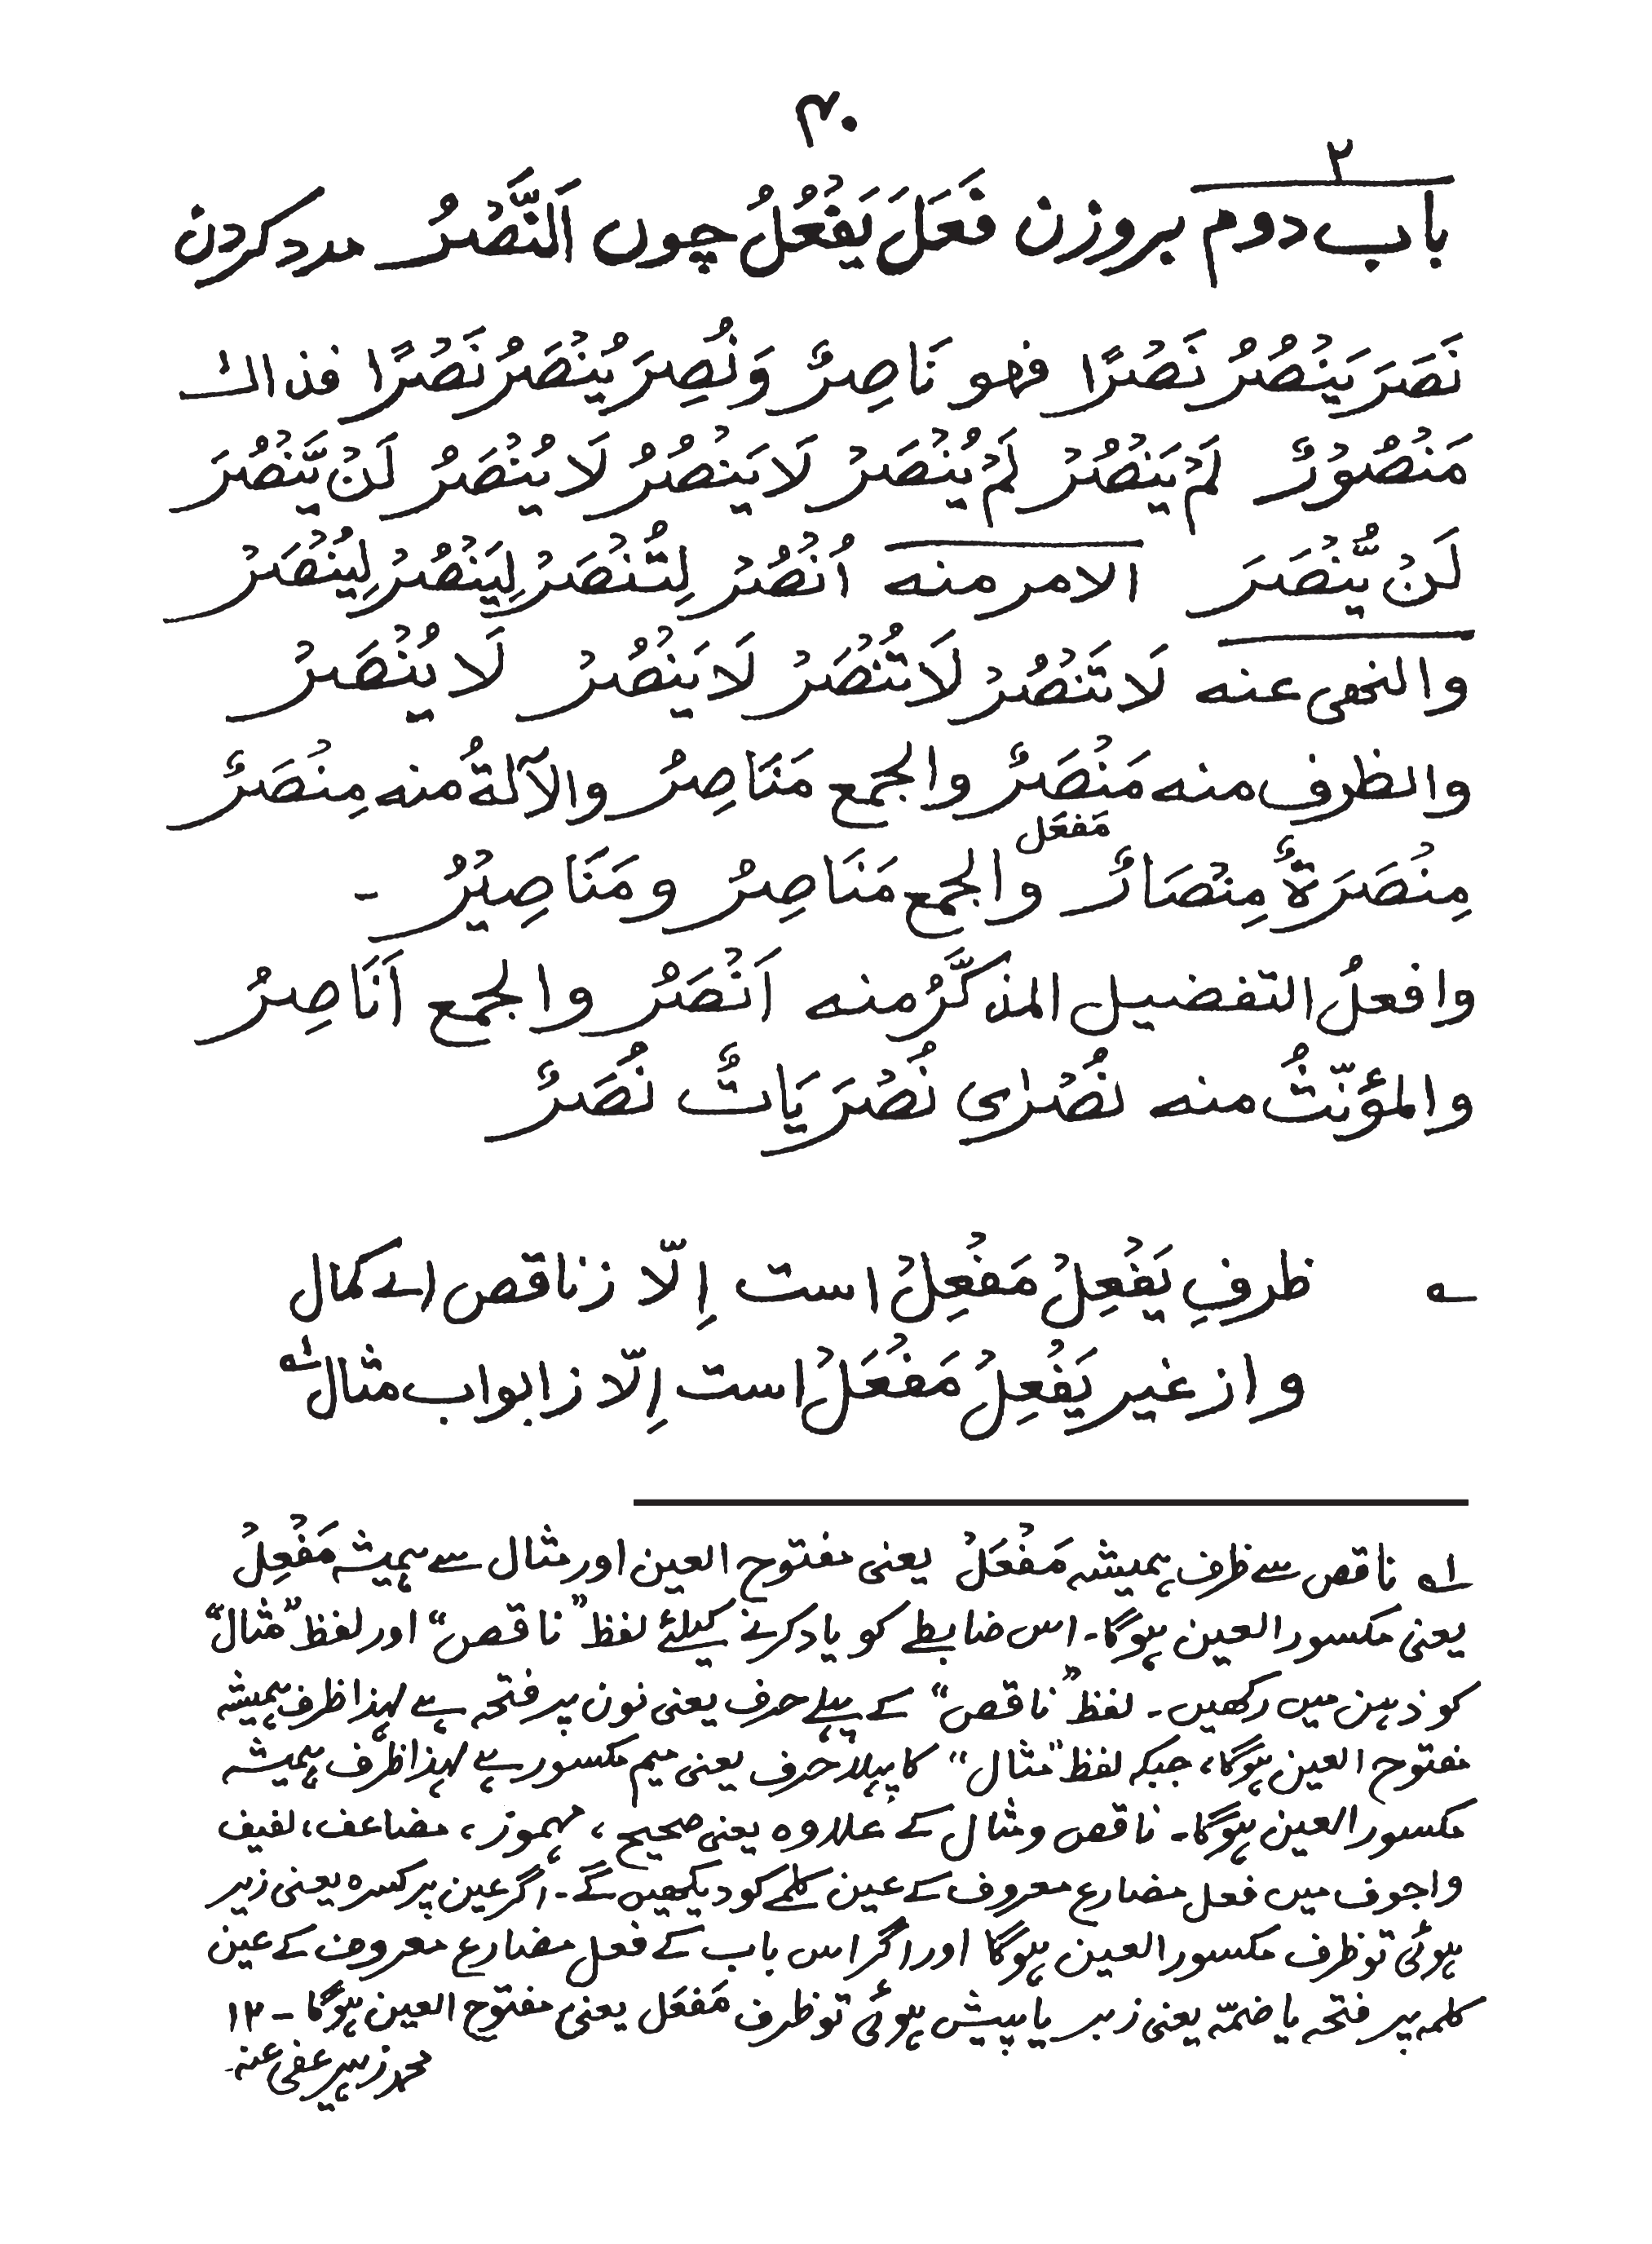 ۴۰
۲
باب دوم بروزن فَعَلَ یَفْعُلُ چوں اَلنَّصْرُ مدد کردن
نَصَرَ یَنْصُرُ نَصْرًا فهو نَاصِرٌ وَ نُصِرَ یُنْصَرُ نَصْرًا فذاك
مَنْصُوْرٌ لَمْ یَنْصُرْ لَمْ یُنْصَرْ لَا یَنْصُرُ لَا یُنْصَرُ لَنْ یَّنْصُرَ
لَنْ یُّنْصَرَ الامر منه اُنْصُرْ لِتُنْصَرْ لِیَنْصُرْ لِیُنْصَرْ
والنهی عنه لَا تَنْصُرْ لَا تُنْصَرْ لَا یَنْصُرْ لَا یُنْصَرْ
والظرف منه مَنْصَرٌ والجمع مَنَاصِرُ والآلةُ منه مِنْصَرٌ
مَفعَل
مِنْصَرَةٌ مِنْصَارٌ والجمع مَنَاصِرُ و مَنَاصِیْرُ ۔
وافعلُ التفضیل المذكَّرُ منه اَنْصَرُ والجمع اَنَاصِرُ
والمؤنّثُ منه نُصْرٰی نُصْرَیَاتٌ نُصَرٌ
؎ ظرفِ یَفْعِلْ مَفْعِلْ است اِلّا ز ناقص اے کمال
و از غیر یَفْعِلْ مَفْعَلْ است اِلّا ز ابواب مثال ؎۱
؎۱ ناقص سے ظرف ہمیشہ مَفْعَلْ یعنی مفتوح العین اور مثال سے ہمیشہ مَفْعِلْ
یعنی مکسور العین ہوگا۔ اس ضابطے کو یاد کرنے کیلئے لفظ ”ناقص“ اور لفظ ”مثال“
کو ذہن میں رکھیں ۔ لفظ ”ناقص“ کے پہلے حرف یعنی نون پر فتحہ ہے لہذا ظرف ہمیشہ
مفتوح العین ہوگا، جبکہ لفظ ”مثال“ کا پہلا حرف یعنی میم مکسور ہے لہذا ظرف ہمیشہ
مکسور العین ہوگا۔ ناقص و مثال کے علاوہ یعنی صحیح ، مہموز ، مضاعف، لفیف
واجوف میں فعل مضارع معروف کے عین کلمے کو دیکھیں گے ۔ اگر عین پر کسرہ یعنی زیر
ہوئی تو ظرف مکسور العین ہوگا اور اگر اس باب کے فعل مضارع معروف کے عین
کلمہ پر فتحہ یا ضمّہ یعنی زبر یا پیش ہوئی تو ظرف مَفعَل یعنی مفتوح العین ہوگا ۔ ۱۲
محمد زہیر عفی عنہ